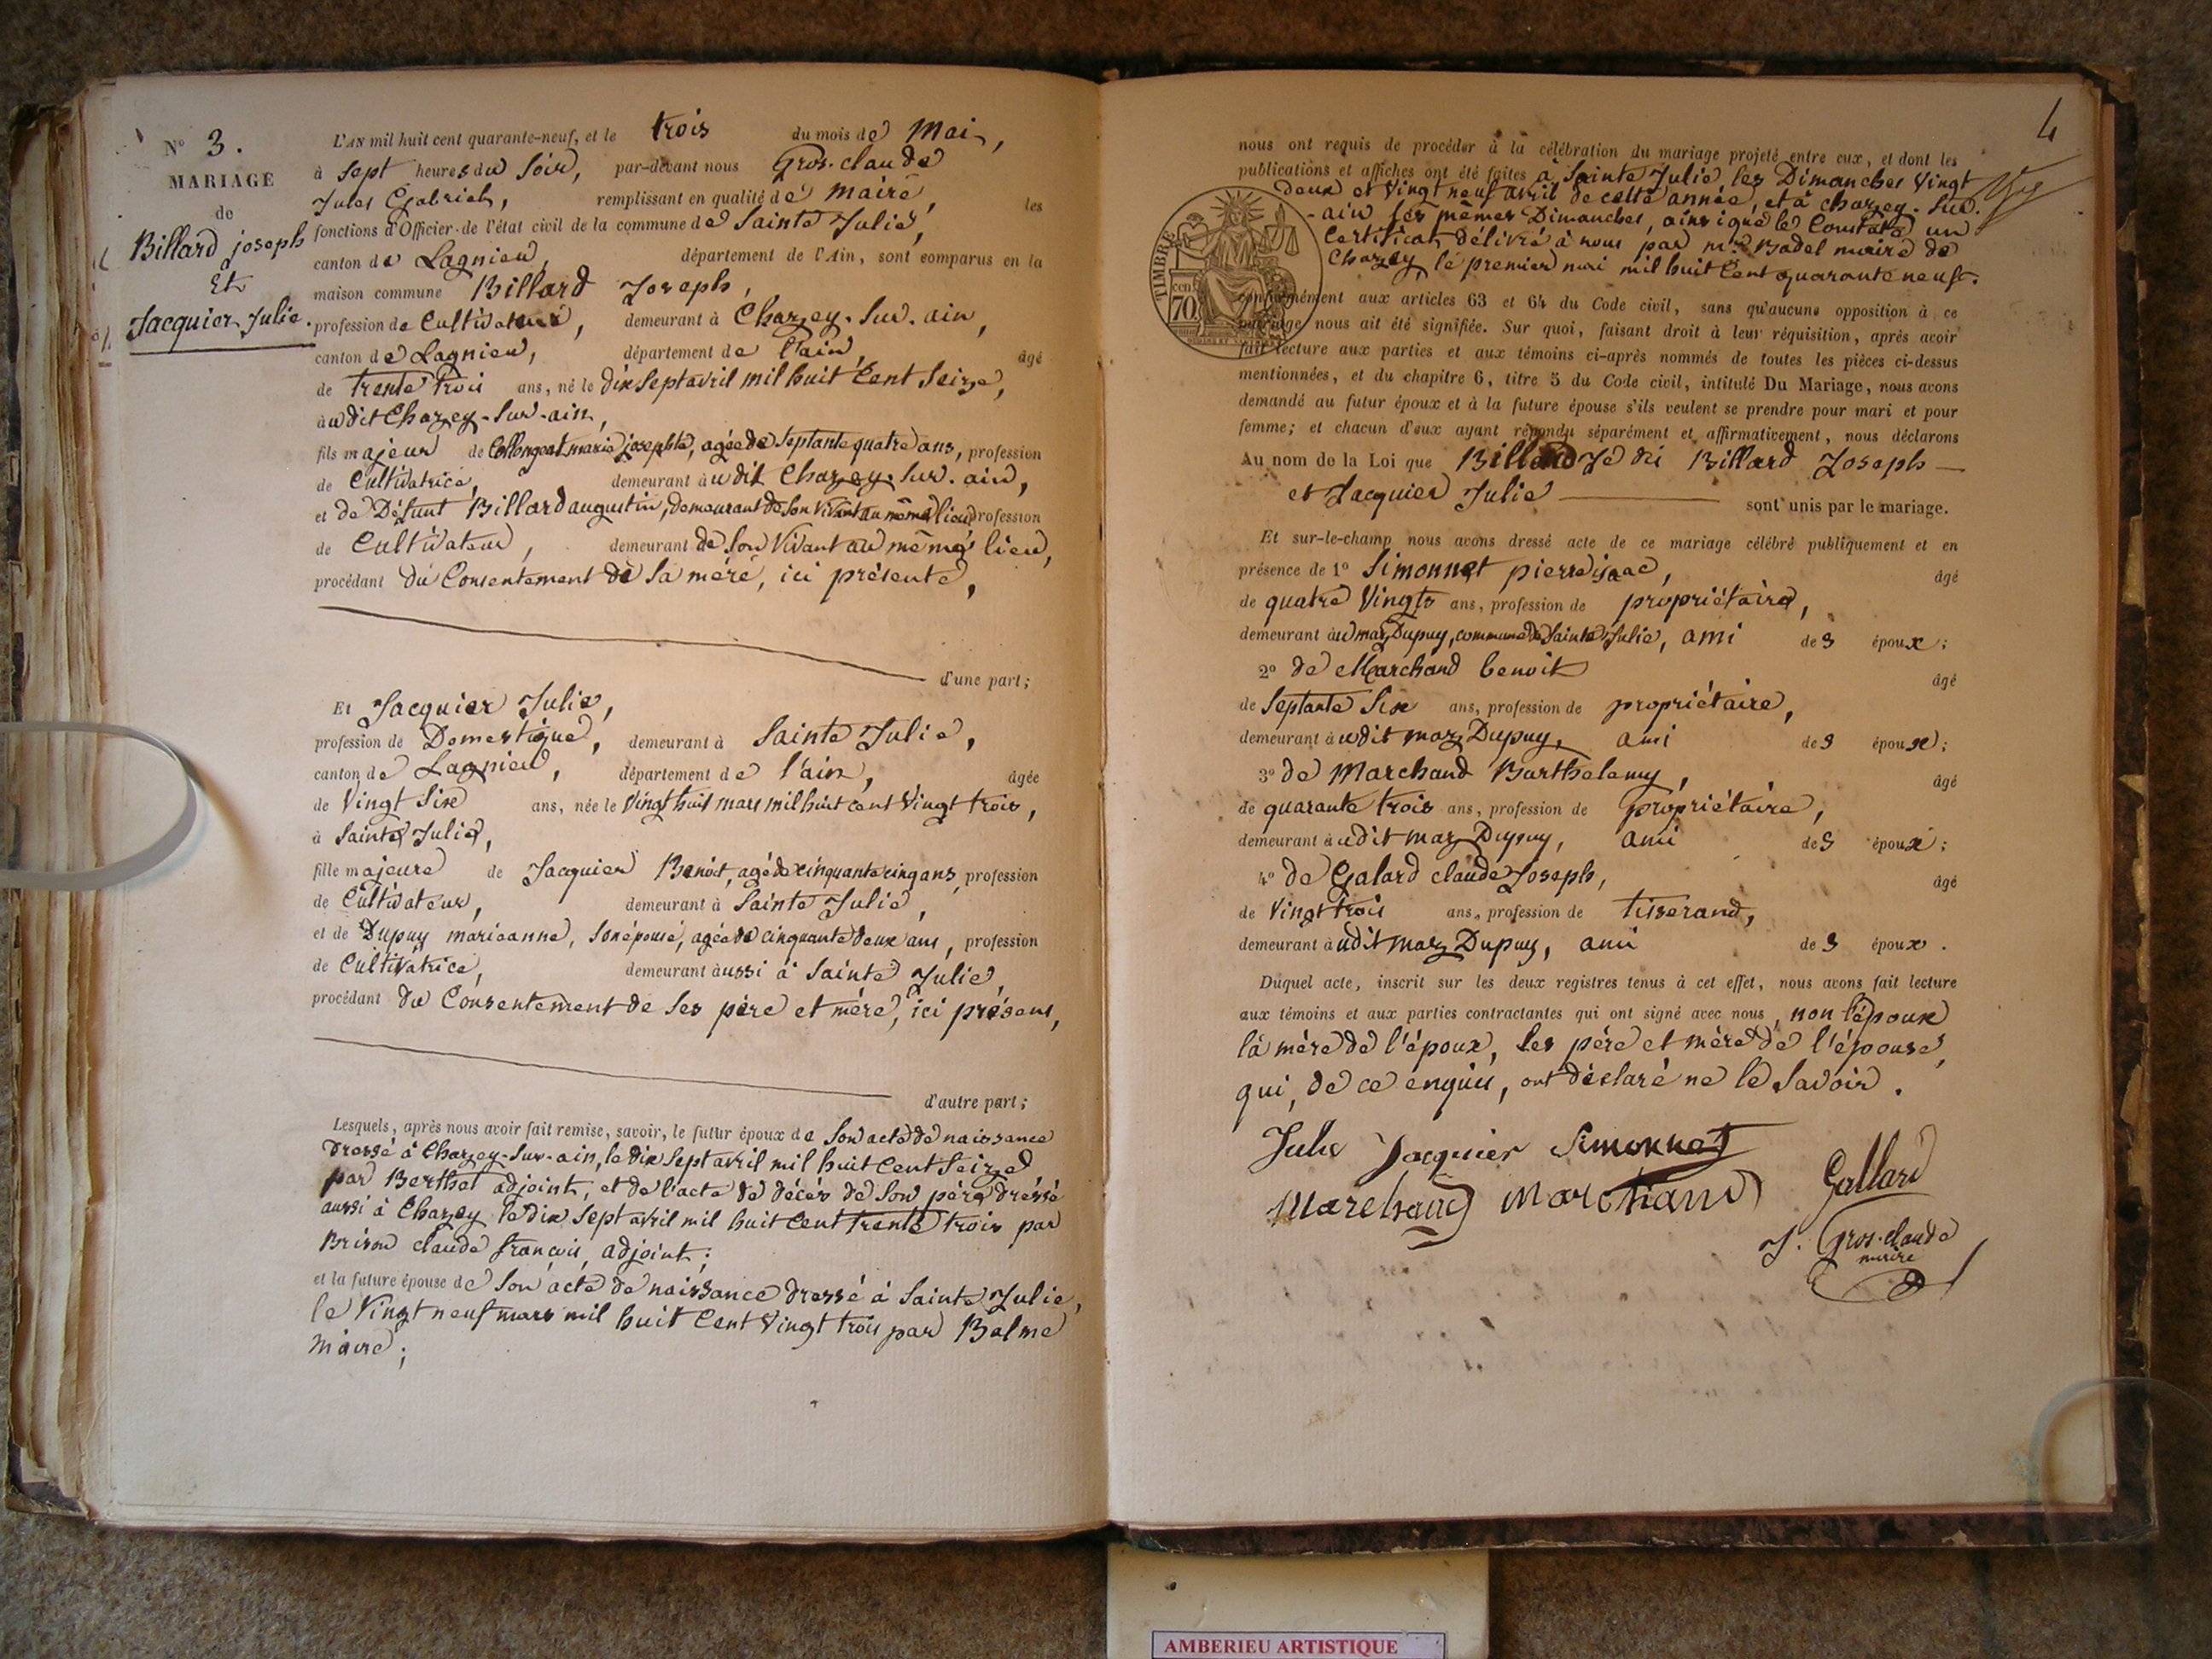 N° 3.
MARIAGE
de
Billard joseph
Et
Jacquier Julie.
L'AN mil huit cent quarante-neuf, et le trois du mois de Mai,
à sept heures du Soir, par-devant nous Gros-claude
Jules Gabriel, remplissant en qualité de maire, les
fonctions d'Officier de l'état civil de la commune de Sainte Julie,
canton de Lagnieu, département de l'Ain, sont comparus en la
maison commune Billard Joseph,
profession de Cultivateur, demeurant à Chazey-Sur-ain,
canton de Lagnieu, département de l'ain, âgé
de trente trois ans, né le dix Sept avril mil huit Cent Seize,
audit Chazey-Sur-ain,
fils majeur de Collongeat marie josephte, agée de Septante quatre ans, profession
de Cultivatrice, demeurant audit Chazey-Sur-ain,
et de Défunt Billard augustin, demeurant de Son Vivant au même lieu profession
de Cultivateur, demeurant de Son Vivant au même lieu,
procédant du Consentement de Sa mère, ici présente,
d'une part;
Et Jacquier Julie,
profession de Domestique, demeurant à Sainte Julie,
canton de Lagnieu, département de l'ain, âgée
de Vingt Six ans, née le Vingt huit mars mil huit cent Vingt trois,
à Sainte Julie,
fille majeure de Jacquier Benoit, agé de cinquante cinq ans, profession
de Cultivateur, demeurant à Sainte Julie,
et de Dupuy marieanne, Son épouse, agée de cinquante deux ans, profession
de Cultivatrice, demeurant aussi à Sainte Julie,
procédant du Consentement de Ses père et mère, ici présens,
d'autre part;
Lesquels, après nous avoir fait remise, savoir, le futur époux de Son acte de naissance
Dressé à Chazey-Sur-ain, le dix Sept avril mil huit Cent Seize,
par Berthet adjoint, et de l'acte de décès de Son père dréssé
aussi à Chazey le dix Sept avril mil huit Cent trente trois par
Brison claude françois, adjoint;
et la future épouse de Son acte de naissance dressé à Sainte Julie,
le Vingt neuf mars mil huit Cent Vingt trois par Balme
maire;
4
nous ont requis de procéder à la célébration du mariage projeté entre eux, et dont les
publications et affiches ont été faites à Sainte Julie les Dimanches Vingt
deux et Vingt neuf avril de cette année, et à chazey-Sur-
ain les mêmes Dimanches, ainsi que le Constate un
Certificat délivré à nous par mr Badel maire de
Chazey, le premier mai mil huit Cent quarante neuf.
TIMBRE
cen
70
conformément aux articles 63 et 64 du Code civil, sans qu'aucune opposition à ce
mariage nous ait été signifiée. Sur quoi, faisant droit à leur réquisition, après avoir
fait lecture aux parties et aux témoins ci-après nommés de toutes les pièces ci-dessus
mentionnées, et du chapitre 6, titre 5 du Code civil, intitulé Du Mariage, nous avons
demandé au futur époux et à la future épouse s'ils veulent se prendre pour mari et pour
femme; et chacun d'eux ayant répondu séparément et affirmativement, nous déclarons
Au nom de la Loi que Billard Je dis Billard Joseph
et Jacquier Julie sont unis par le mariage.
Et sur-le-champ nous avons dressé acte de ce mariage célébré publiquement et en
présence de 1° Simonnet pierre isaac, âgé
de quatre Vingts ans, profession de propriétaire,
demeurant au maz Dupuy, commune de Sainte Julie, ami des époux;
2° de Marchand benoit âgé
de Septante Six ans, profession de propriétaire,
demeurant audit maz Dupuy, ami des époux;
3° de Marchand Barthelemy, âgé
de quarante trois ans, profession de propriétaire,
demeurant audit maz Dupuy, ami des époux;
4° de Galard claude Joseph, âgé
de Vingt trois ans, profession de tisserand,
demeurant audit maz Dupuy, ami des époux.
Duquel acte, inscrit sur les deux registres tenus à cet effet, nous avons fait lecture
aux témoins et aux parties contractantes qui ont signé avec nous, non l'époux
la mère de l'époux, les père et mère de l'épouse,
qui, de ce enquis, ont déclaré ne le Savoir.
Julie Jacquier Simonnet
Marchand Marchand Gallard
J. Gros-claude
maire
AMBERIEU ARTISTIQUE